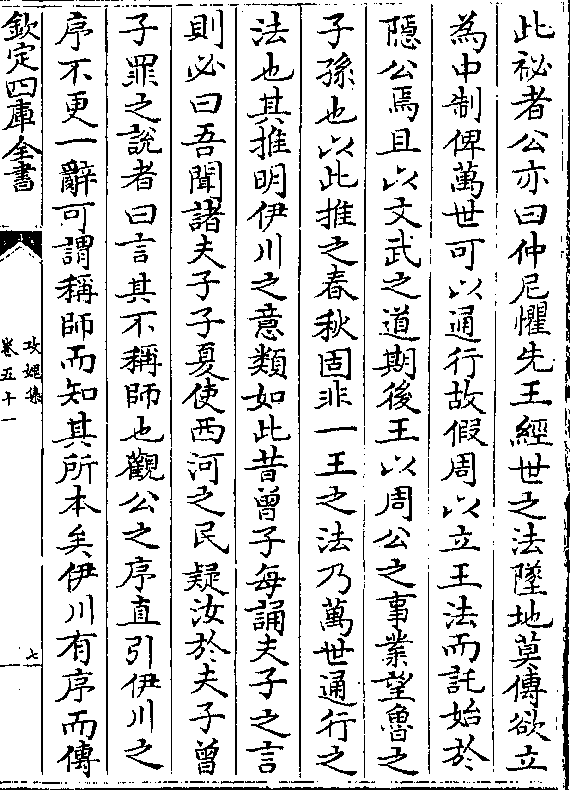 此祕者公亦曰仲尼懼先王經世之法墜地莫傳欲立
為中制俾萬世可以通行故假周以立王法而託始於
隱公焉且以文武之道期後王以周公之事業望魯之
子孫也以此推之春秋固非一王之法乃萬世通行之
法也其推明伊川之意類如此昔曾子每誦夫子之言
則必曰吾聞諸夫子子夏使西河之民疑汝於夫子曾
子罪之說者曰言其不稱師也觀公之序直引伊川之
序不更一辭可謂稱師而知其所本矣伊川有序而傳
欽定四庫全書
攻媿集
卷五十一
七